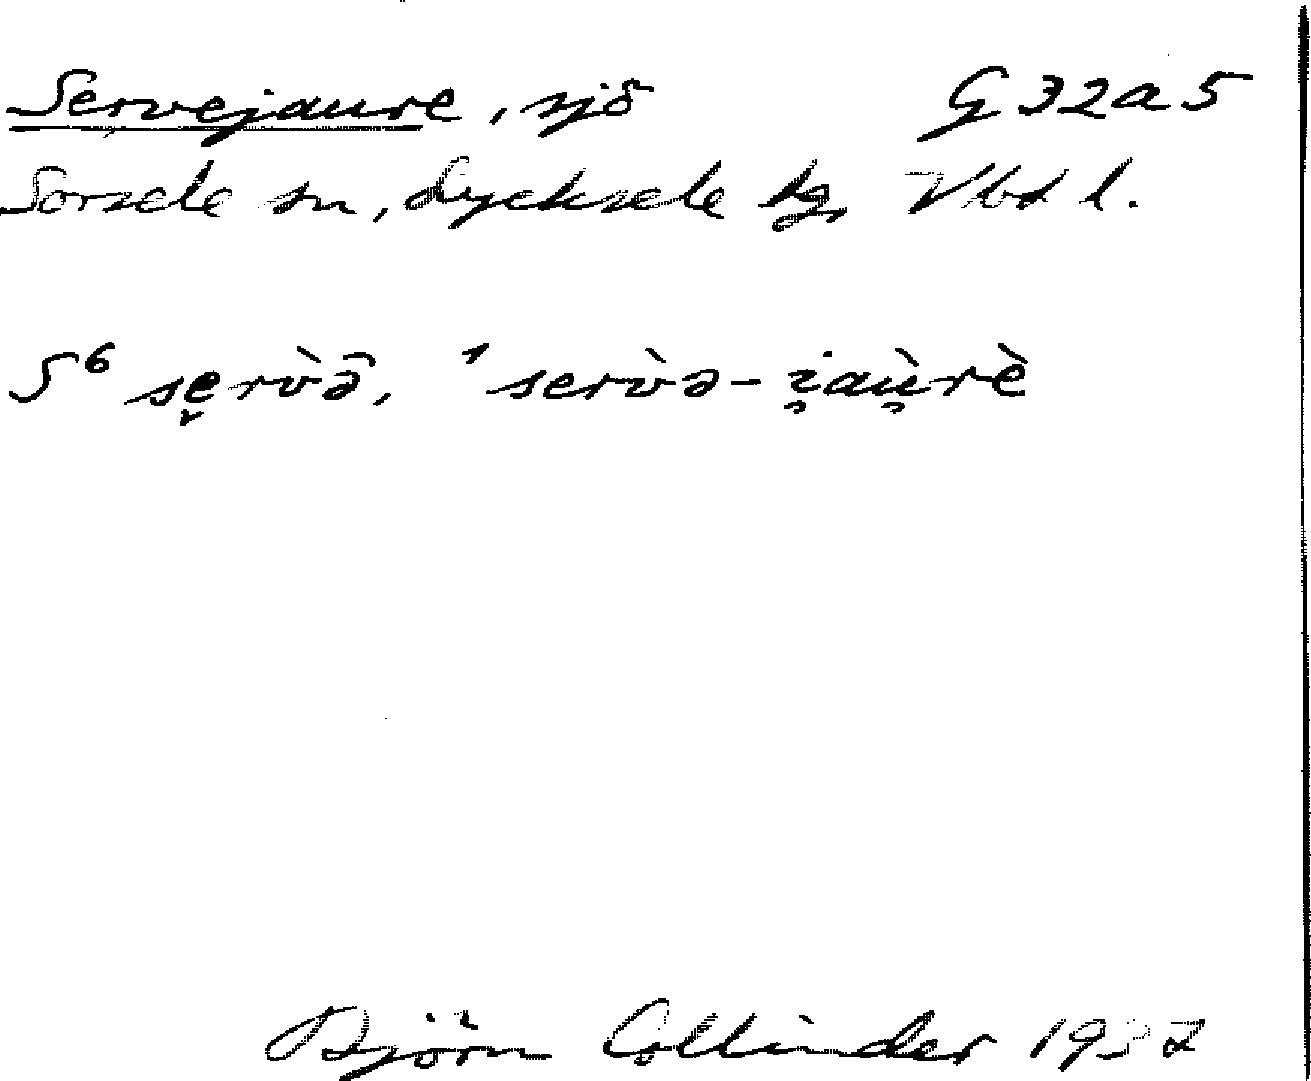 Servejaure, sjö G 32 a 5
Sorsele sn, Lycksele tg, Vbt l.
S⁶ sę̌rv̀ə̄, ¹serv̀ə-i̯aù̯rè
Björn Collinder 19